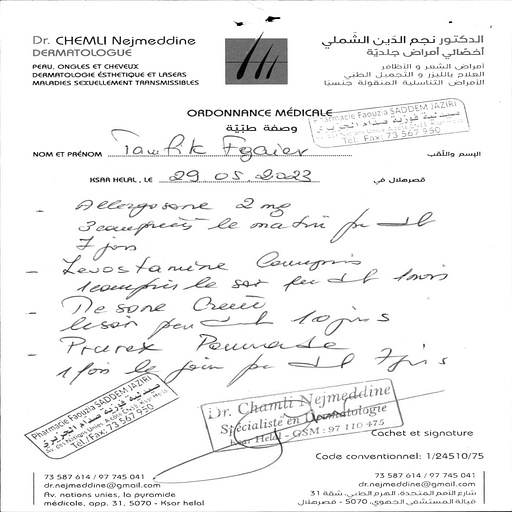 Dr. CHEMLI Nejmeddine
DERMATOLOGUE
PEAU, ONGLES ET CHEVEUX
DERMATOLOGIE ESTHETIQUE ET LASERS
MALADIES SEXUELLEMENT TRANSMISSIBLES
الدكتور نجم الدّين الشّملي
أخصّائي أمراض جلديّة
أمراض الشعر و الأظافر
العلاج بالليزر و التجميل الطبي
الأمراض التناسلية المنقولة جنسيا
ORDONNANCE MÉDICALE
وصفة طبّيّة
Pharmacie Faouzia SADDEM JAZIRI
صيدلية فوزية صدام الجزيري
Tel. Fax: 73 567 950
NOM ET PRÉNOM Tawfik الإسم واللّقب
KSAR HELAL, LE 29 05 2023 قصرهلال في
- 2 mg
3 comprimés le matin
7 jours
- Levostamine Comprimés
1 comprimé le soir 1 mois
- Desone Creme
le soir 10 jours
- Prurex Pommade
1 fois le jour 7 jours
Pharmacie Faouzia SADDEM JAZIRI
صيدلية فوزية صدام الجزيري
Tel./Fax: 73 567 950
Dr. Chamli Nejmeddine
Spécialiste en Dermatologie
Ksar Helal - GSM : 97 110 475
Cachet et signature
Code conventionnel: 1/24510/75
73 587 614 / 97 745 041
dr.nejmeddine@gmail.com
Av. nations unies, la pyramide
médicale, app. 31, 5070 - Ksar helal
73 587 614 / 97 745 041
dr.nejmeddine@gmail.com
شارع الأمم المتحدة، الهرم الطبي، شقة 31
قبالة المستشفى الجهوي، 5070 - قصرهلال